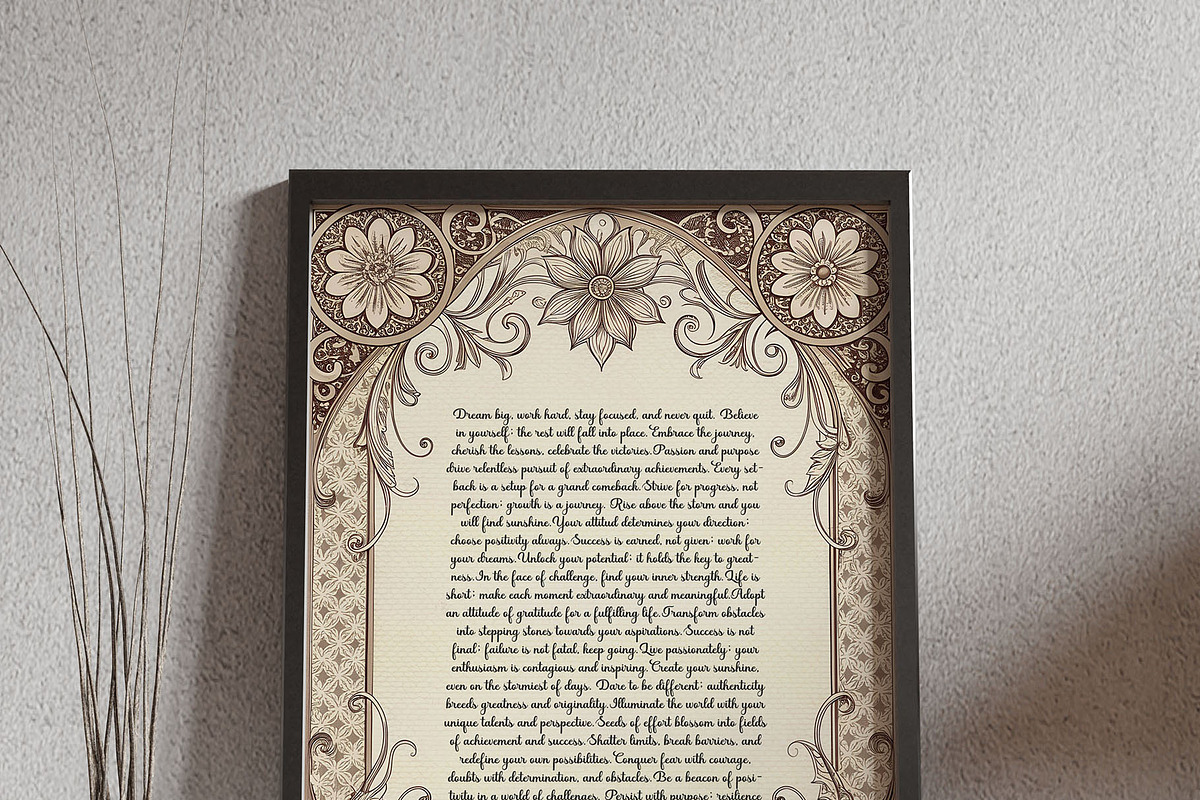 Dream big, work hard, stay focused, and never quit. Believe
in yourself; the rest will fall into place. Embrace the journey,
cherish the lessons, celebrate the victories. Passion and purpose
drive relentless pursuit of extraordinary achievements. Every set-
back is a setup for a grand comeback. Strive for progress, not
perfection; growth is a journey. Rise above the storm and you
will find sunshine. Your attitud determines your direction;
choose positivity always. Success is earned, not given; work for
your dreams. Unlock your potential; it holds the key to great-
ness. In the face of challenge, find your inner strength. Life is
short; make each moment extraordinary and meaningful. Adopt
an attitude of gratitude for a fulfilling life. Transform obstacles
into stepping stones towards your aspirations. Success is not
final; failure is not fatal, keep going. Live passionately; your
enthusiasm is contagious and inspiring. Create your sunshine,
even on the stormiest of days. Dare to be different; authenticity
breeds greatness and originality. Illuminate the world with your
unique talents and perspective. Seeds of effort blossom into fields
of achievement and success. Shatter limits, break barriers, and
redefine your own possibilities. Conquer fear with courage,
doubts with determination, and obstacles. Be a beacon of posi-
tivity in a world of challenges. Persist with purpose; resilience